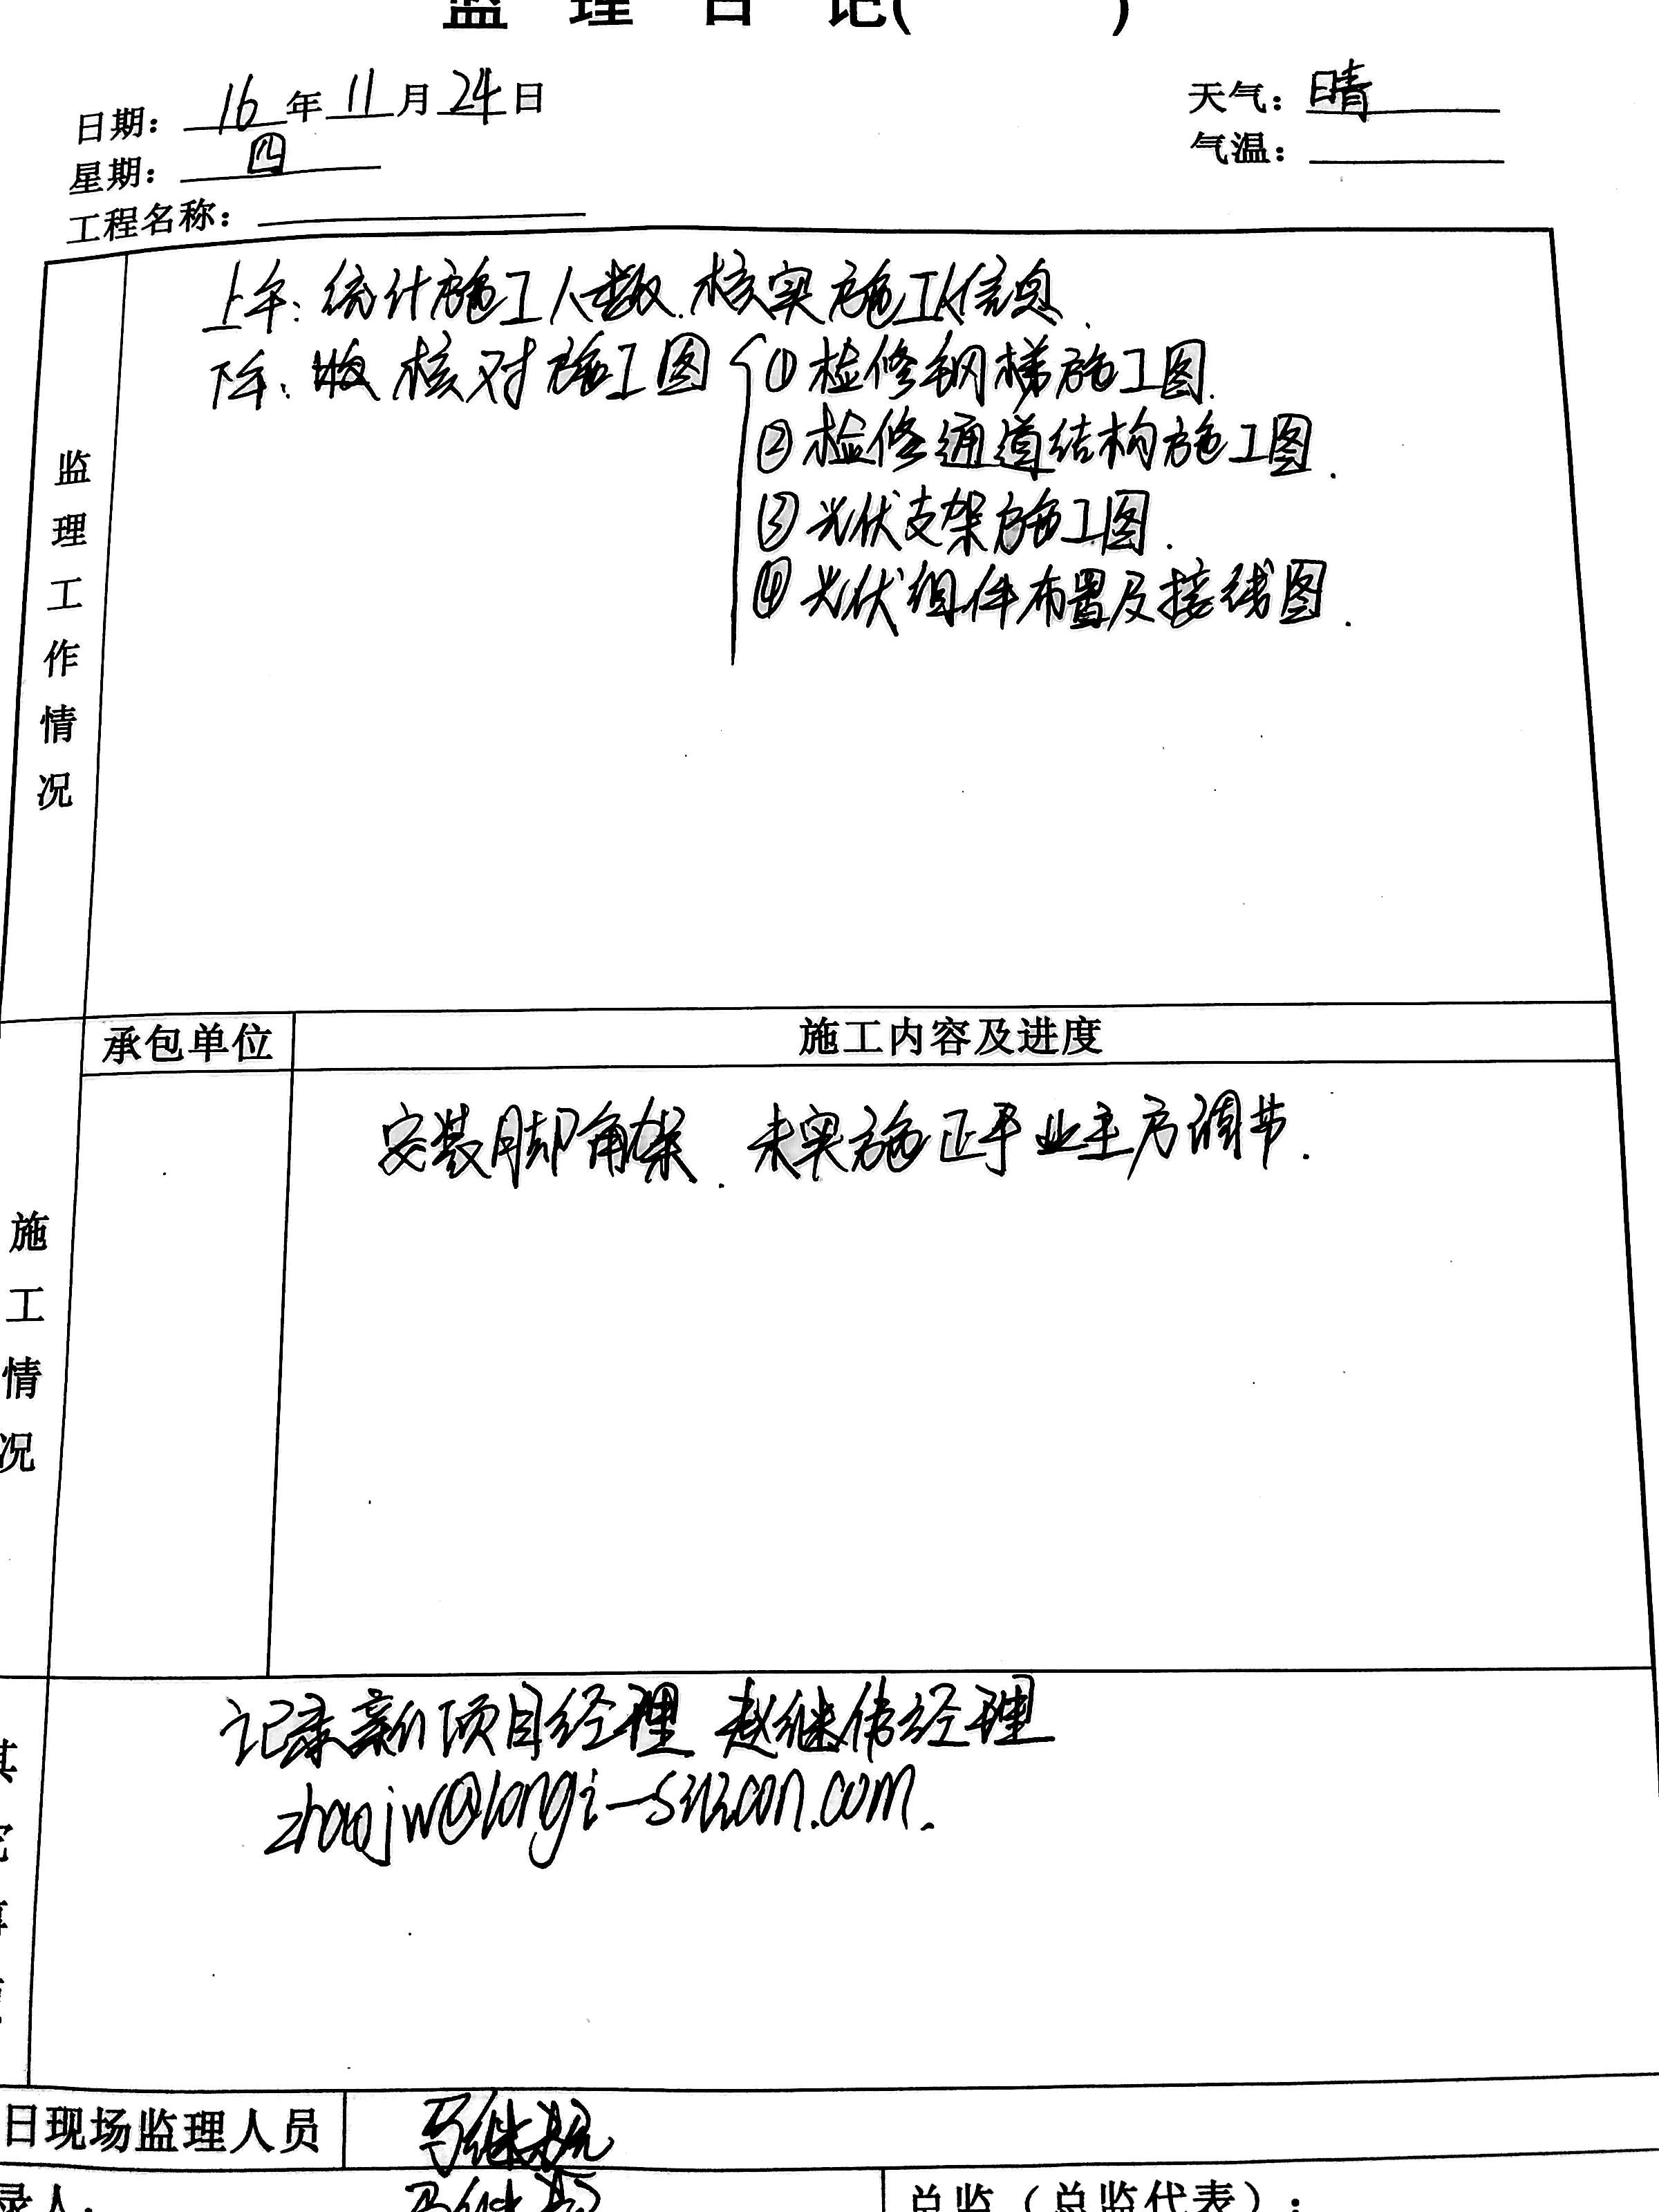 监理日记( )
日期：16年11月24日
天气：晴
星期：四
气温：
工程名称：
监理工作情况
上午：统计施工人数.核实施工队信息.
下午：收核对施工图 { ①检修钢梯施工图.
②检修通道结构施工图.
③光伏支架施工图.
④光伏组件布置及接线图.
承包单位
施工内容及进度
施工情况
安装脚角架.未实施正于业主方调节.
记录新项目经理 赵继伟经理
zhaojw@longi-silicon.com.
日现场监理人员
马继
录人：
马继
总监（总监代表）：